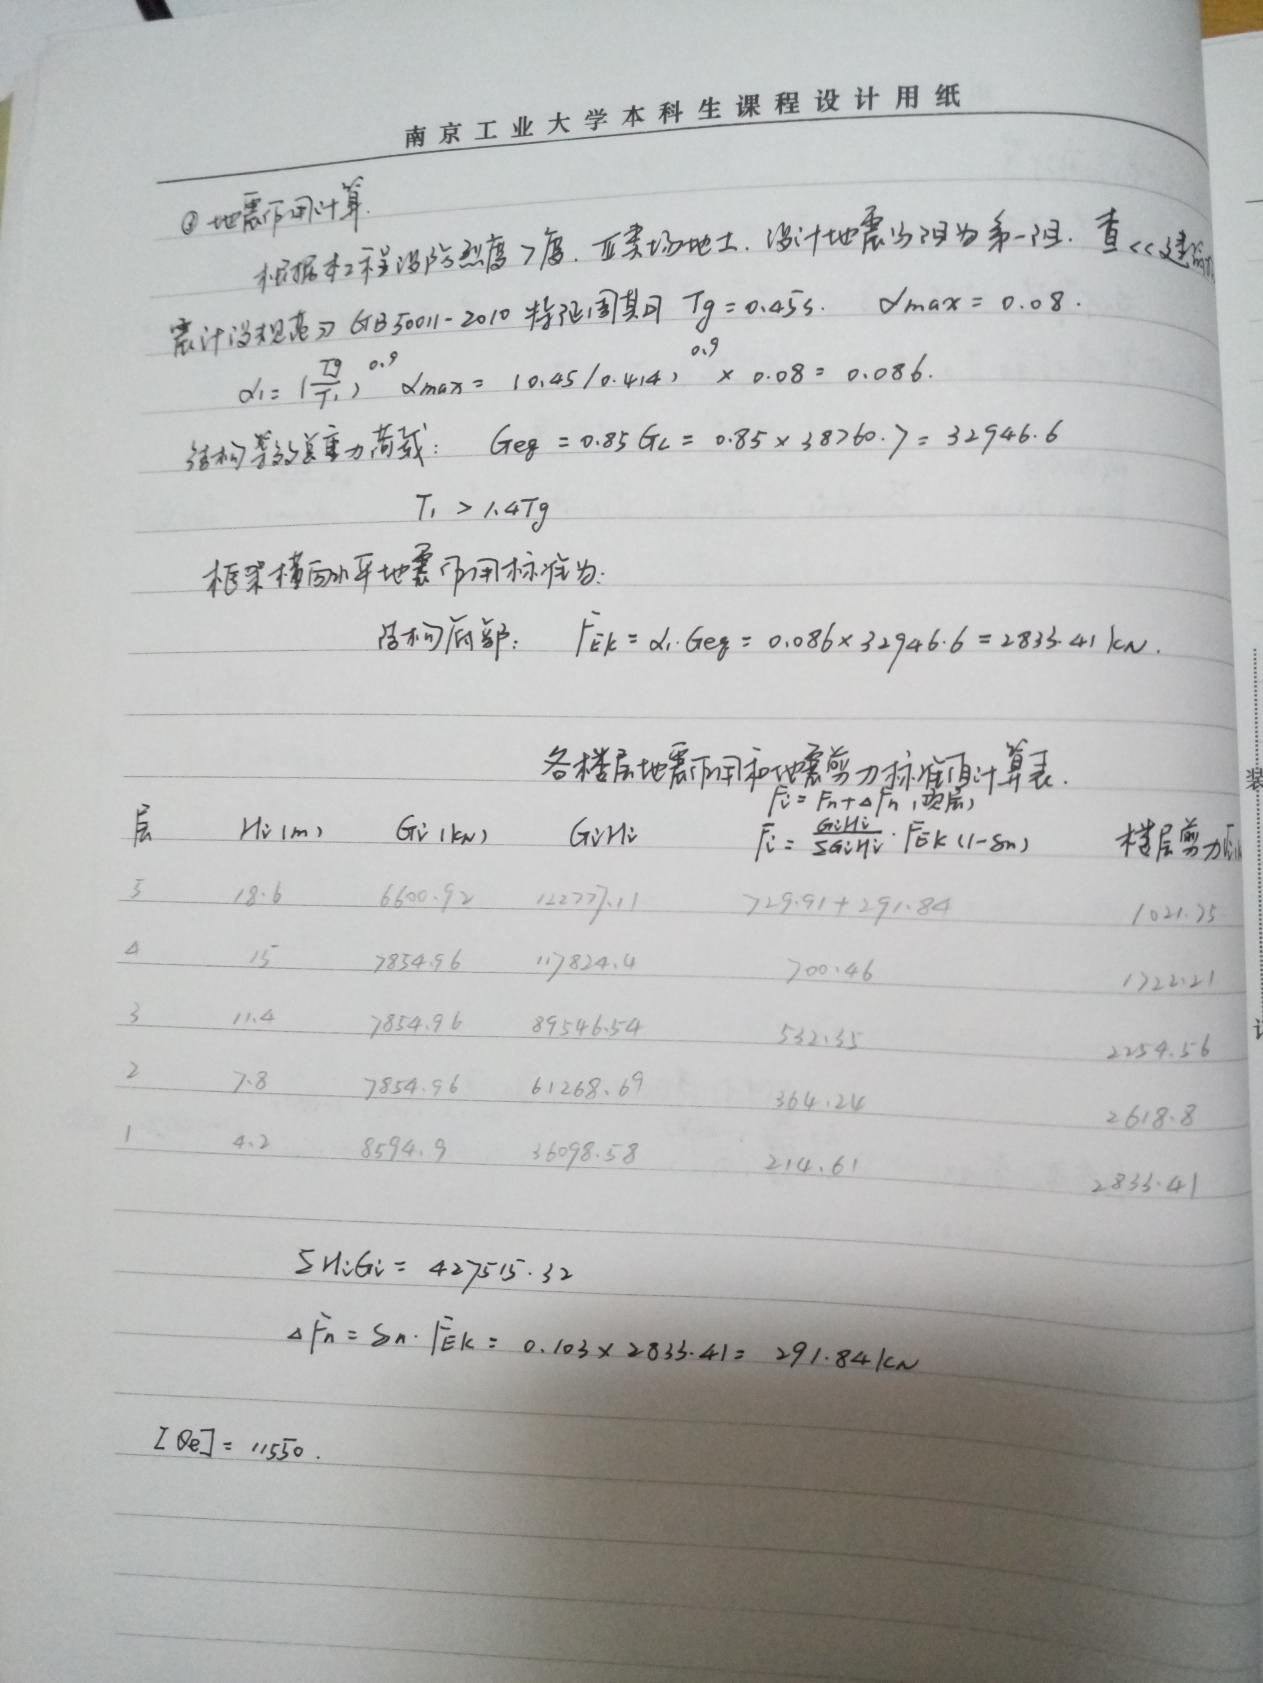 南京工业大学本科生课程设计用纸
② 地震作用计算.
根据本工程设防烈度7度. Ⅱ类场地土. 设计地震分组为第一组. 查《建筑
震计设规范》GB50011-2010 特征周期 Tg=0.45s. αmax=0.08.
α₁=(Tg/T₁)^0.9 αmax=(0.45/0.414)^0.9 × 0.08=0.086.
结构等效总重力荷载: Geq=0.85GL=0.85×38760.7=32946.6
T₁>1.4Tg
框架横向水平地震作用标准为:
结构底部: FEK=α₁·Geq=0.086×32946.6=2833.41kN.
各楼层地震作用和地震剪力标准值计算表.
Fi=Fn+△Fn(顶层)
层 Hi(m) Gi(kN) GiHi Fi=GiHi/ΣGiHi·FEK(1-δn) 楼层剪力
5 18.6 6600.92 122777.11 729.91+291.84 1021.75
4 15 7854.96 117824.4 700.46 1722.21
3 11.4 7854.96 89546.54 532.35 2254.56
2 7.8 7854.96 61268.69 364.24 2618.8
1 4.2 8594.9 36098.58 214.61 2833.41
ΣHiGi=427515.32
△Fn=δn·FEK=0.103×2833.41=291.84kN
[θe]=1/550.
装